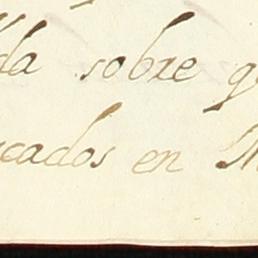 da sobre q
cados en